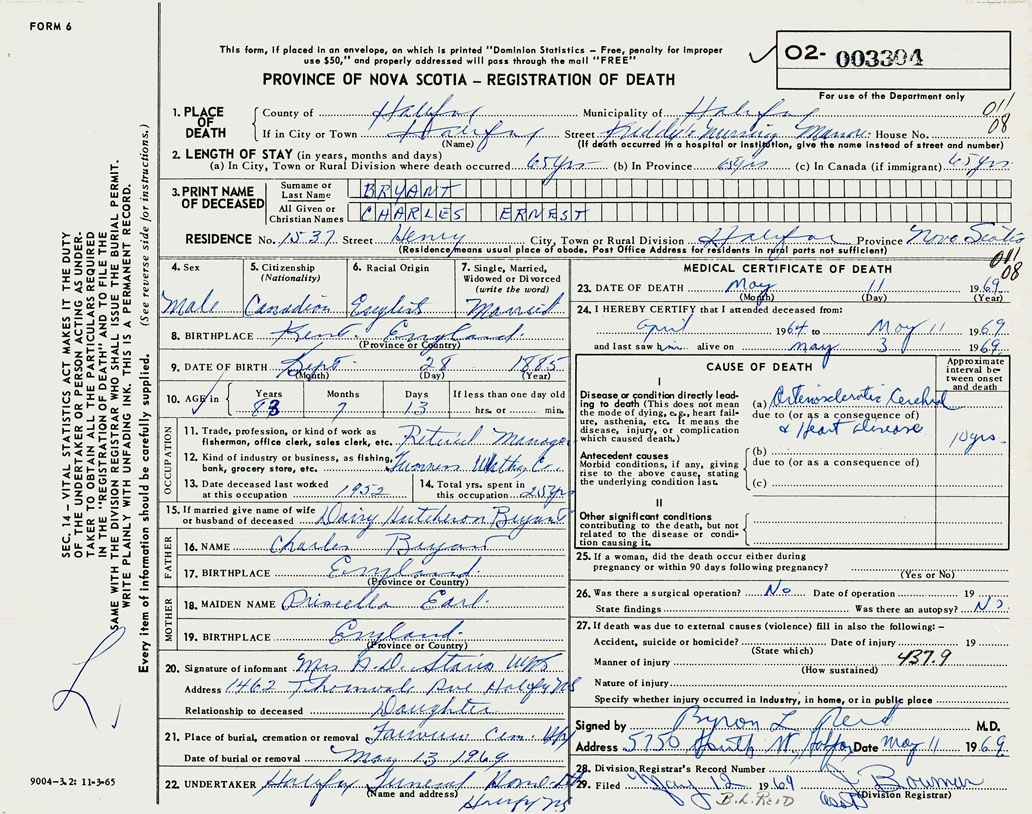 FORM 6
This form, if placed in an envelope, on which is printed "Dominion Statistics – Free, penalty for improper
use $50," and properly addressed will pass through the mail "FREE"
PROVINCE OF NOVA SCOTIA – REGISTRATION OF DEATH
O2- 003304
For use of the Department only
011
08
1. PLACE OF DEATH
County of Halifax Municipality of Halifax
If in City or Town Halifax Street Nursing Manor House No.
(Name) (If death occurred in a hospital or institution, give the name instead of street and number)
2. LENGTH OF STAY (in years, months and days)
(a) In City, Town or Rural Division where death occurred 65 yrs (b) In Province 65 yrs (c) In Canada (if immigrant) 65 yrs
3. PRINT NAME OF DECEASED
Surname or Last Name BRYANT
All Given or Christian Names CHARLES ERNEST
RESIDENCE No. 1537 Street Henry City, Town or Rural Division Halifax Province Nova Scotia
(Residence means usual place of abode. Post Office Address for residents in rural parts not sufficient)
011
08
4. Sex
Male
5. Citizenship
(Nationality)
Canadian
6. Racial Origin
English
7. Single, Married,
Widowed or Divorced
(write the word)
Married
8. BIRTHPLACE Kent England
(Province or Country)
9. DATE OF BIRTH Sept 28 1885
(Month) (Day) (Year)
10. AGE in Years Months Days If less than one day old
83 7 13 hrs. or min.
OCCUPATION
11. Trade, profession, or kind of work as
fisherman, office clerk, sales clerk, etc. Retired Manager
12. Kind of industry or business, as fishing,
bank, grocery store, etc. Withy Co.
13. Date deceased last worked
at this occupation 1952
14. Total yrs. spent in
this occupation 25 yrs
15. If married give name of wife
or husband of deceased Daisy Hutcheson Bryant
FATHER
16. NAME Charles Bryant
17. BIRTHPLACE England
(Province or Country)
MOTHER
18. MAIDEN NAME Priscilla Earl
19. BIRTHPLACE England
(Province or Country)
20. Signature of informant Mrs
Address 1462 Thornvale Ave Halifax NS
Relationship to deceased Daughter
21. Place of burial, cremation or removal Fairview Cem.
Date of burial or removal May 13 1969
22. UNDERTAKER Halifax Funeral Home Ltd
(Name and address)
Halifax NS
MEDICAL CERTIFICATE OF DEATH
23. DATE OF DEATH May 11 1969
(Month) (Day) (Year)
24. I HEREBY CERTIFY that I attended deceased from:
April 1964 to May 11 1969
and last saw him alive on May 3 1969
CAUSE OF DEATH
Approximate
interval be-
tween onset
and death
I
Disease or condition directly lead-
ing to death (This does not mean
the mode of dying, e.g., heart fail-
ure, asthenia, etc. It means the
disease, injury, or complication
which caused death.)
(a) Arteriosclerotic Cerebral
due to (or as a consequence of)
& Heart disease
10 yrs.
Antecedent causes
Morbid conditions, if any, giving
rise to the above cause, stating
the underlying condition last.
(b)
due to (or as a consequence of)
(c)
II
Other significant conditions
contributing to the death, but not
related to the disease or condi-
tion causing it.
25. If a woman, did the death occur either during
pregnancy or within 90 days following pregnancy?
(Yes or No)
26. Was there a surgical operation? No Date of operation 19
State findings Was there an autopsy? No
27. If death was due to external causes (violence) fill in also the following: –
Accident, suicide or homicide? Date of injury 19
(State which)
Manner of injury 437.9
(How sustained)
Nature of injury
Specify whether injury occurred in Industry, in home, or in public place
Signed by Byron L Reid M.D.
Address 5750 South St. Halifax Date May 11 1969
28. Division Registrar's Record Number
29. Filed May 12 1969 J Bowman
(Division Registrar)
B.L. REID
SEC. 14 – VITAL STATISTICS ACT MAKES IT THE DUTY
OF THE UNDERTAKER OR PERSON ACTING AS UNDER-
TAKER TO OBTAIN ALL THE PARTICULARS REQUIRED
IN THE "REGISTRATION OF DEATH" AND TO FILE THE
SAME WITH THE DIVISION REGISTRAR WHO SHALL ISSUE THE BURIAL PERMIT.
WRITE PLAINLY WITH UNFADING INK. THIS IS A PERMANENT RECORD.
Every item of information should be carefully supplied. (See reverse side for instructions.)
9004-3.2: 11-3-65